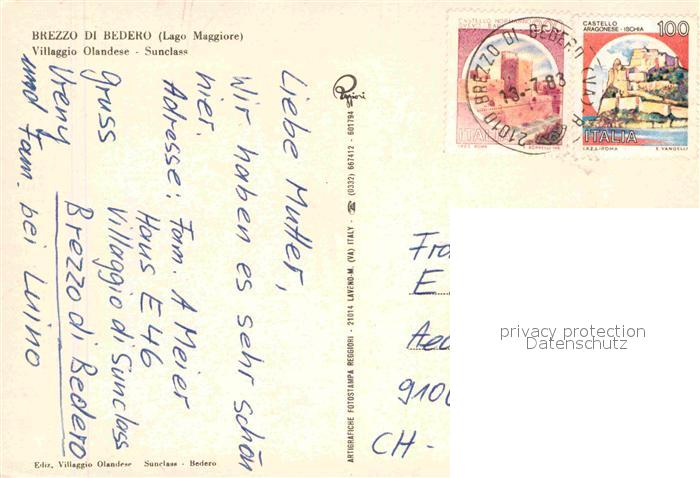 BREZZO DI BEDERO (Lago Maggiore)
Villaggio Olandese - Sunclass
Liebe Mutter,
Wir haben es sehr schön
hier.
Adresse: Fam. A Meier
Haus E 46
Villaggio di Sunclass
Gruss Brezzo di Bedero
Vreny
und Fam. bei Luino
Ediz. Villaggio Olandese Sunclass - Bedero
ARTIGRAFICHE FOTOSTAMPA REGGIORI - 21014 LAVENO-M. (VA) ITALY - ☎ (0332) 667412 - 601794
Reggiori
CASTELLO
ARAGONESE - ISCHIA
100
ITALIA
I.P.Z.S.-ROMA E. VANGELLI
ITALIA
I.P.Z.S. ROMA
21010 BREZZO DI BEDERO (VA)
-7.83
Fra
E
Aec
910
CH -
privacy protection
Datenschutz